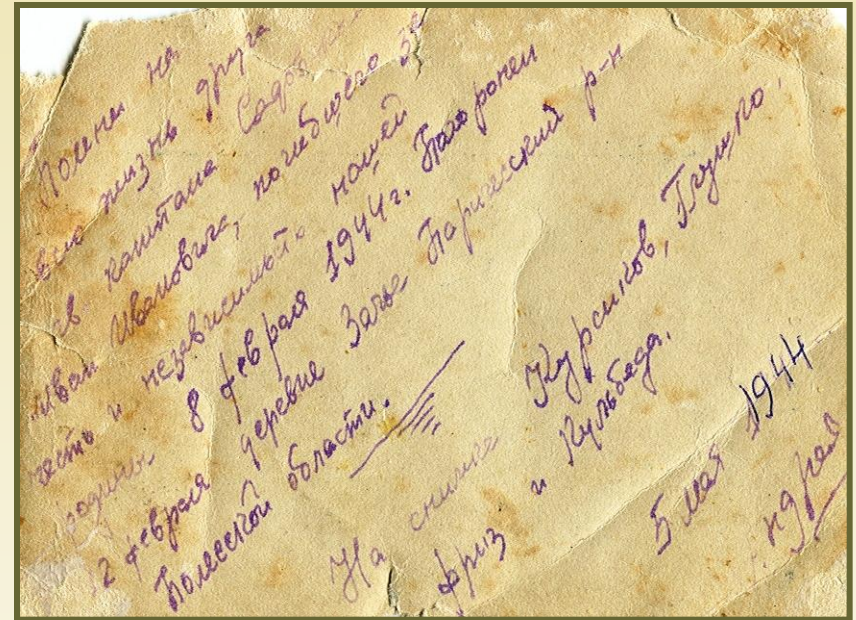 на
жизнь друга
гв. капитана
Иван Ивановича, погибшего за
честь и независимость нашей
родины 8 февраля 1944 г. Похоронен
2 февраля деревне Заче Паричский р-н
Полесской области.
На снимке Курсиков,
фриз и Кульбеда.
5 мая 1944